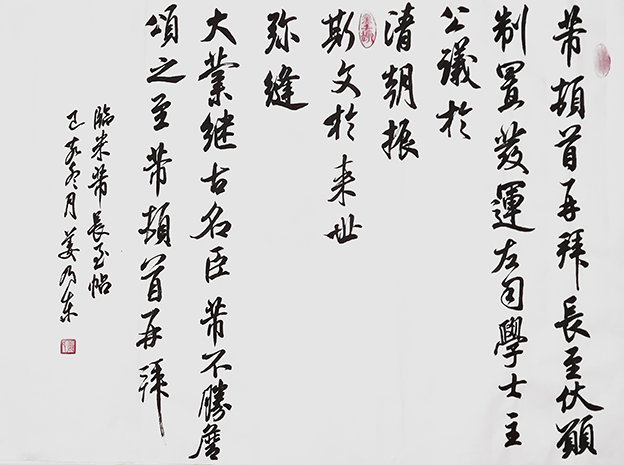 芾頓首再拜長至伏願
制置發運左司學士主
公議於
清朝振
斯文於来世
弥縫
大業继古名臣芾不勝詹
頌之至芾頓首再拜
臨米芾長至帖
己亥冬月姜乃东